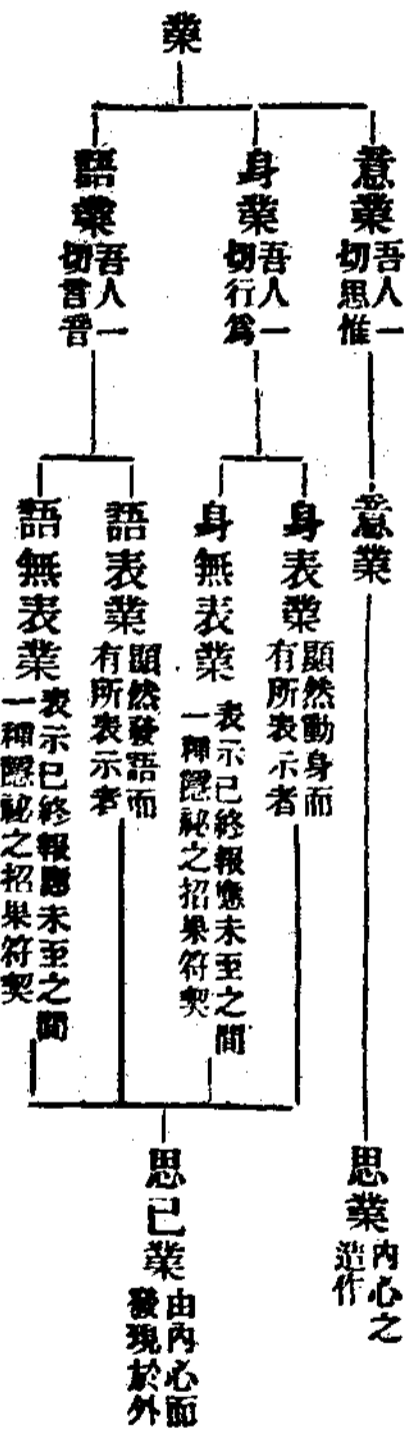 業
意業 吾人一切思惟
身業 吾人一切行爲
語業 吾人一切言音
意業
身表業 顯然動身而有所表示者
身無表業 表示已終報應未至之間一種隱祕之招果符契
語表業 顯然發語而有所表示者
語無表業 表示已終報應未至之間一種隱祕之招果符契
思業 內心之造作
思已業 由內心而發現於外